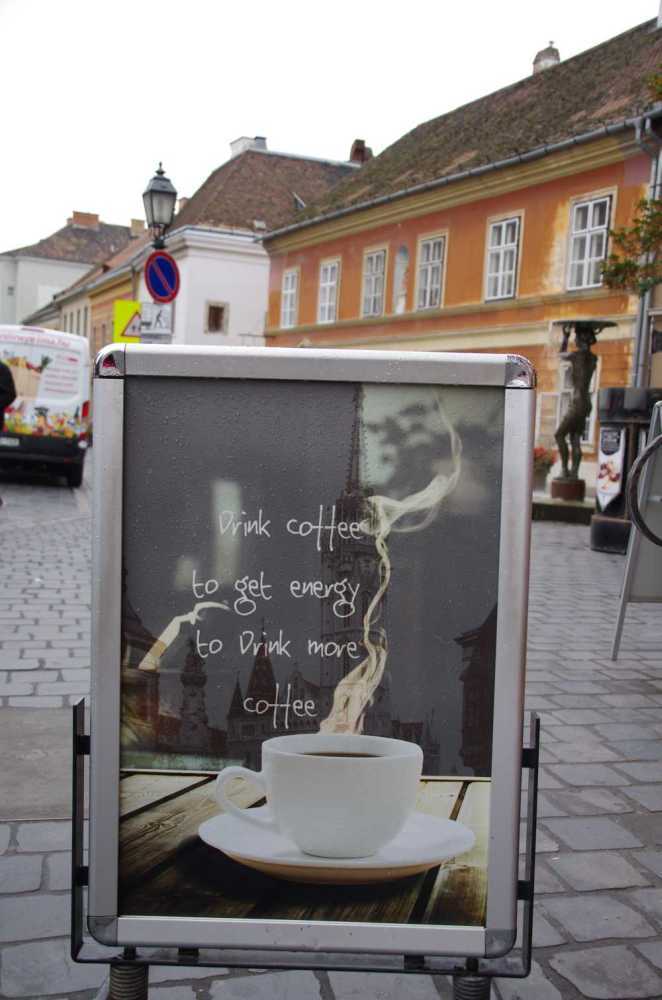 Drink coffee
to get energy
to Drink more
coffee